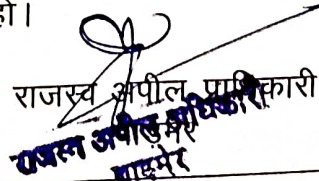 हो।
राजस्व अपील प्राधिकारी
राजस्व अपील अधिकारी
बाड़मेर